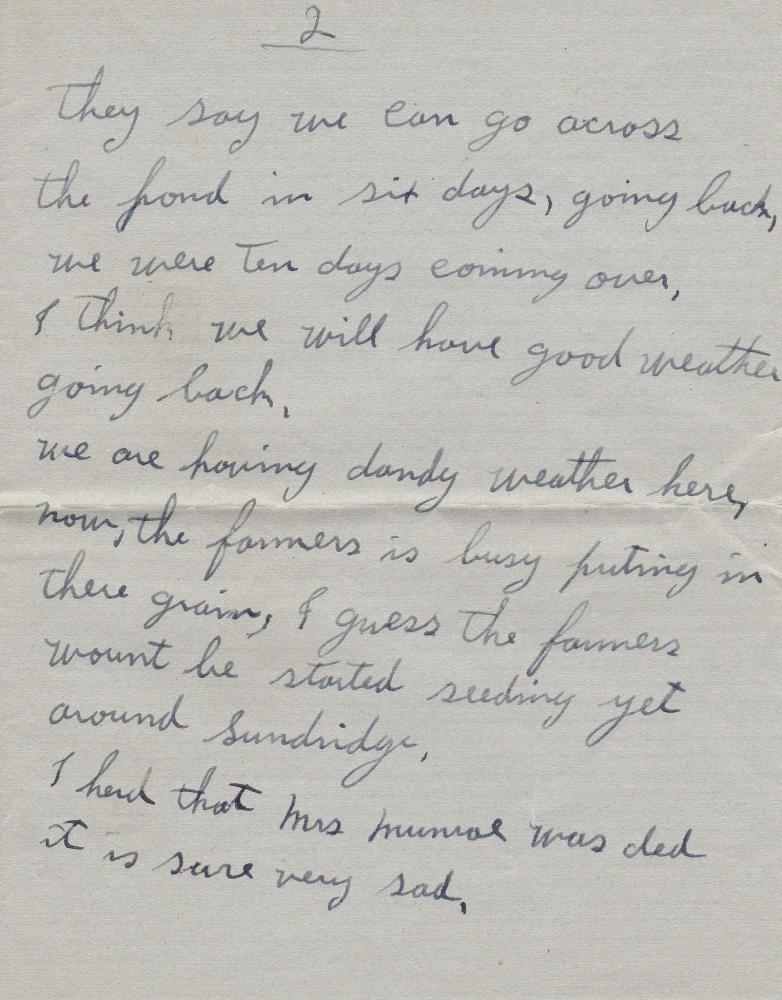 2
They say we can go across
the pond in six days, going back,
we were Ten days comimg over,
I Think we will have good weather
going back,
we are having dandy weather here,
now, the farmers is busy puting in
there grain, I guess the farmers
wount be started seeding yet
around Sundridge,
I herd that Mrs Munroe was ded
it is sure very sad,